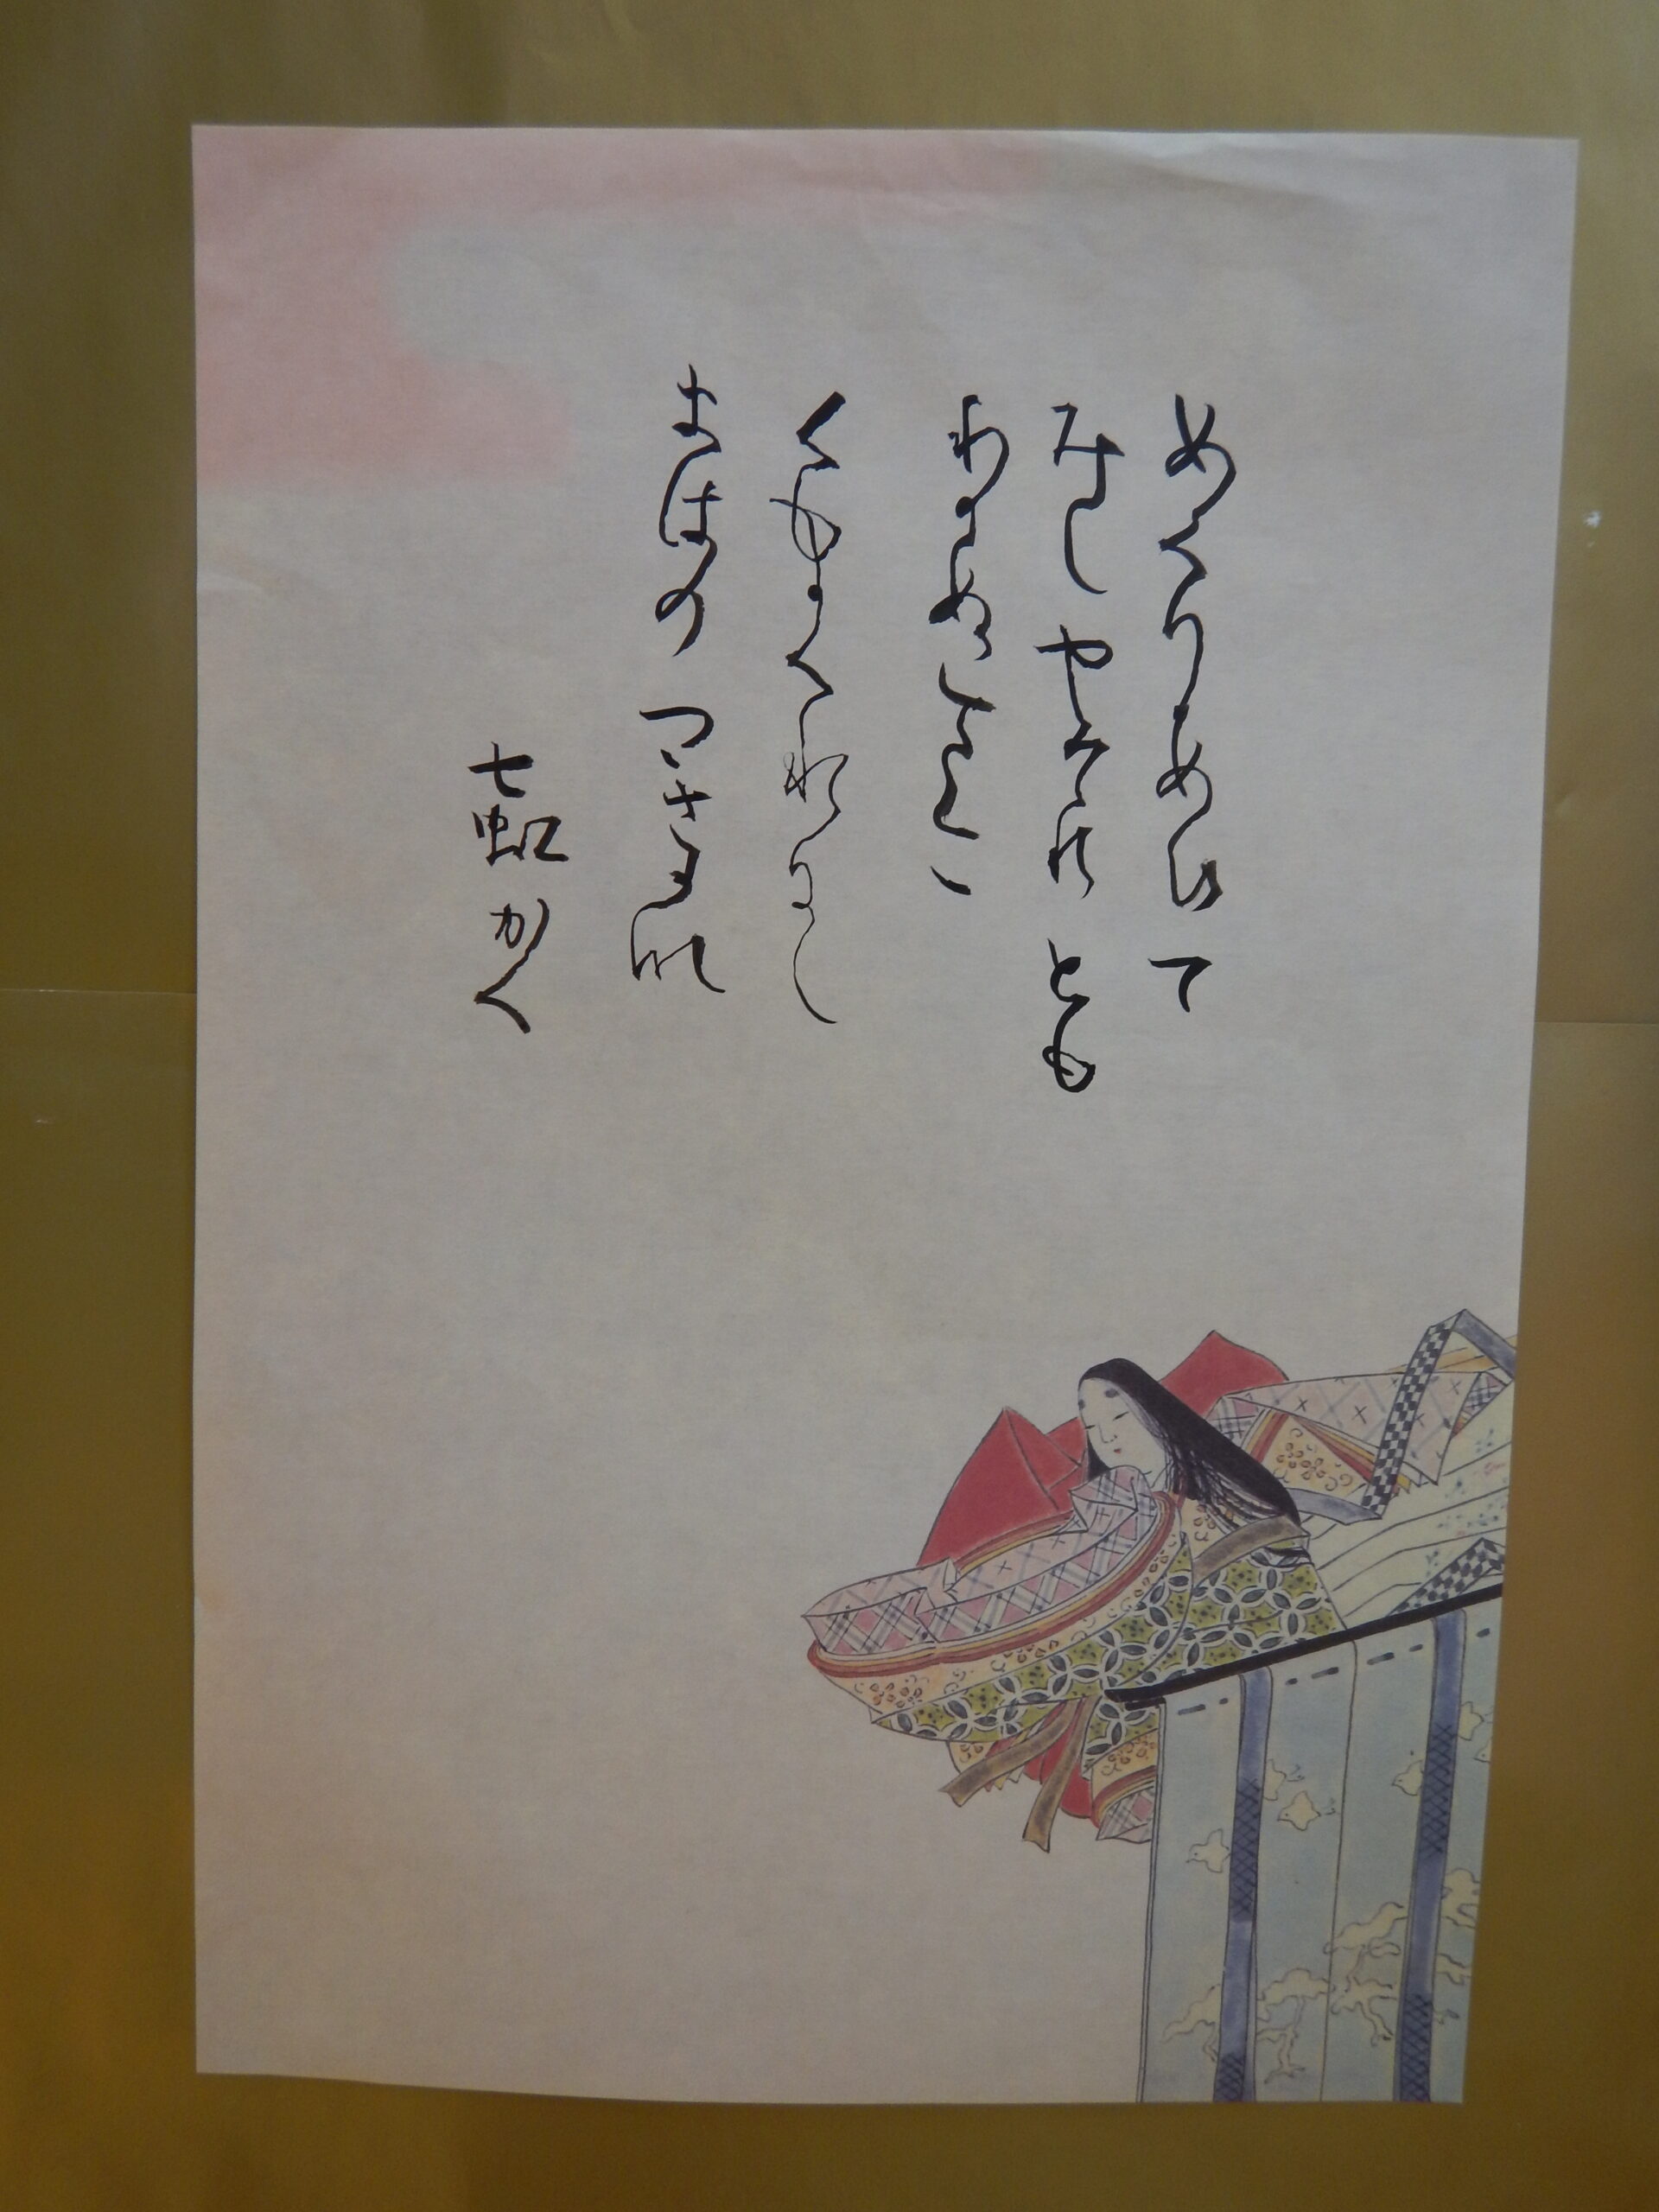 めくりあひて
みしやそれとも
わかぬまに
くもかくれにし
よはのつきかな
七虹かく